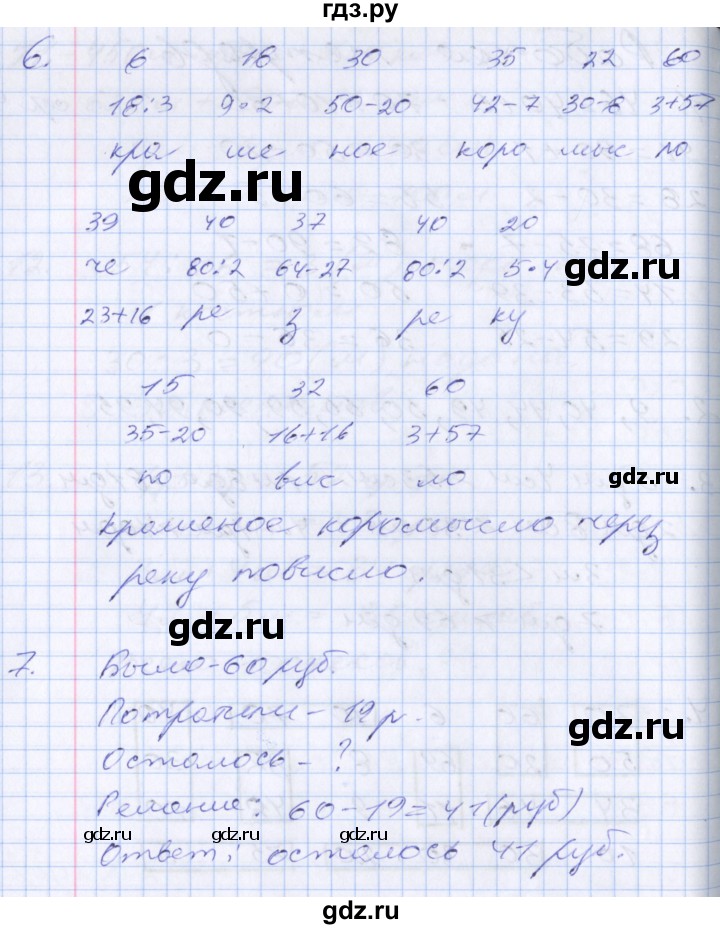 гдз.ру
6. 6 16 30 35 22 60
18:3 9·2 50-20 42-7 30-8 3+57
кра ше ное коро мыс ло
gdz.ru
39 40 37 40 20
че 80:2 64-27 80:2 5·4
gdz.ru
23+16 ре з ре ку
15 32 60
35-20 16+16 3+57
по вис ло
gdz.ru
крашеное коромысло через
реку повисло.
gdz.ru
7. Было-60 руб.
Потратили - 19 р.
gdz.ru
Осталось - ?
Решение: 60-19=41(руб)
gdz.ru gdz.ru gdz.ru gdz.ru
Ответ: осталось 41 руб.
gdz.ru